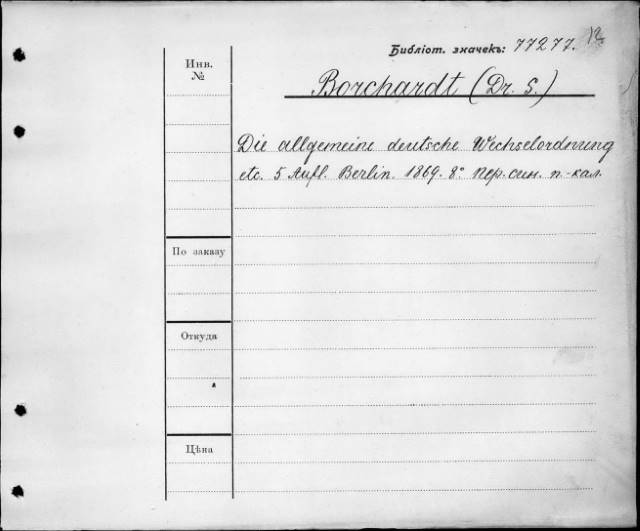 Библіот. значекъ: 77277.
Инв.
№
Borchardt (Dr. S.)
Die allgemeine deutsche Wechselordnung
etc. 5 Aufl. Berlin. 1869. 8° пер. син. п.-кал.
По заказу
Откуда
Цѣна